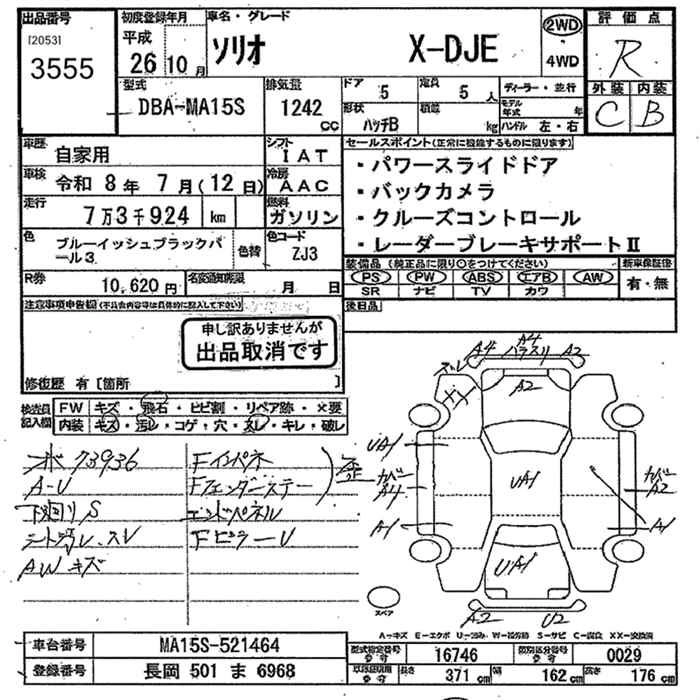 出品番号
[2053]
3555
初度登録年月
平成
26 10 月
車名・グレード
ソリオ X-DJE
2WD
4WD
評価点
R
外装 内装
C B
型式
DBA-MA15S
排気量
1242 cc
ドア 5
定員 5 人
形状 ハッチB
積載 kg
ディーラー・並行
モデル年式 年
ハンドル 左・右
車歴 自家用
シフト IAT
車検 令和 8年 7月(12日)
冷房 AAC
走行 7万3千924 km
燃料 ガソリン
色 ブルーイッシュブラックパール3
色替
色コード ZJ3
R券 10,620円
名変通知期限 月 日
セールスポイント(正常に機能するものに限ります)
・パワースライドドア
・バックカメラ
・クルーズコントロール
・レーダーブレーキサポートⅡ
装備品(純正品に限り○をつけてください)
新車保証書
PS PW ABS エアB AW
SR ナビ TV カワ
有・無
後日品
注意事項申告欄(不具合内容等は具体的に記入して下さい)
申し訳ありませんが
出品取消です
修復歴 有[箇所 ]
検査員記入欄
FW キズ・飛石・ヒビ割・リペア跡・×要
内装 キズ・汚レ・コゲ・穴・スレ・キレ・破レ
73936
A-U
下廻りS
AWキズ
Fインパネ
Fフェンダーステー
エンドパネル
FピラーU
歪
A4
A4
A2
ズレ
XX
A2
UA1
カバー
A4
A1
UA1
カバー
A2
A1
UA1
A2
U2
スペア
A-キズ E-エクボ U-凹み W-波 S-サビ C-腐食 XX-交換済
車台番号 MA15S-521464
登録番号 長岡 501 ま 6968
型式指定番号 16746
類別区分番号 0029
長さ 371 cm
幅 162 cm
高さ 176 cm